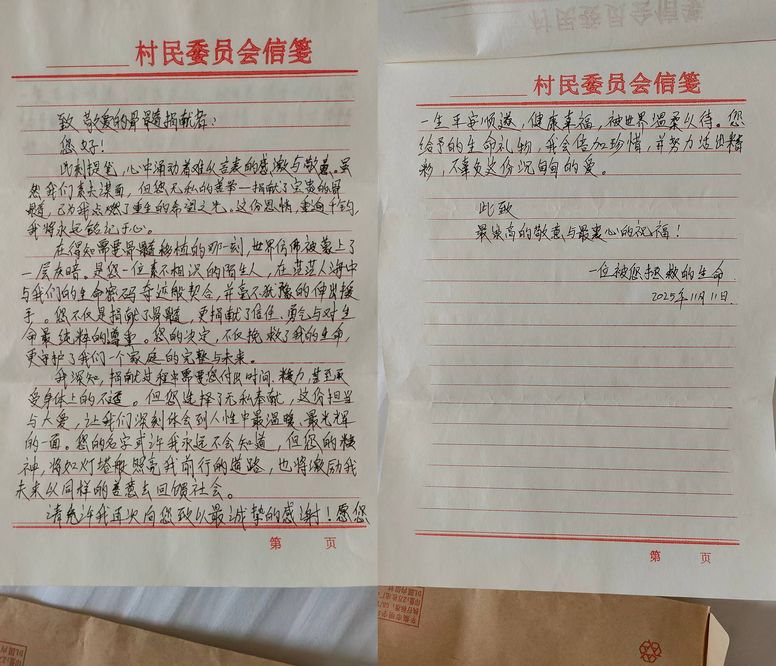 村民委员会信笺
致 敬爱的骨髓捐献者：
您好！
此刻提笔，心中涌动着难以言表的感激与敬意。虽
然我们素未谋面，但您无私的善举—捐献了宝贵的骨
髓，已为我点燃了重生的希望之光。这份恩情，重逾千钧，
我将永远铭记于心。
在得知需要骨髓移植的那一刻，世界仿佛被蒙上了
一层灰暗。是您一位素不相识的陌生人，在茫茫人海中
与我们的生命密码奇迹般契合，并毫不犹豫的伸出援
手。您不仅是捐献了骨髓，更捐献了信任、勇气与对生
命最纯粹的尊重。您的决定，不仅挽救了我的生命，
更守护了我们一个家庭的完整与未来。
我深知，捐献过程中需要您付出时间、精力，甚至承
受身体上的不适。但您选择了无私奉献，这份担当
与大爱，让我们深刻体会到人性中最温暖、最光辉
的一面。您的名字或许我永远不会知道，但您的精
神，将如灯塔般照亮我前行的道路，也将激励我
未来以同样的善意去回馈社会。
请允许我再次向您致以最诚挚的感谢！愿您
第 页
村民委员会信笺
一生平安顺遂，健康幸福，被世界温柔以待。您
给予的生命礼物，我会倍加珍惜，并努力活出精
彩，不辜负这份沉甸甸的爱。
此致
最崇高的敬意与最衷心的祝福！
一位被您拯救的生命
2025年11月11日.
第 页